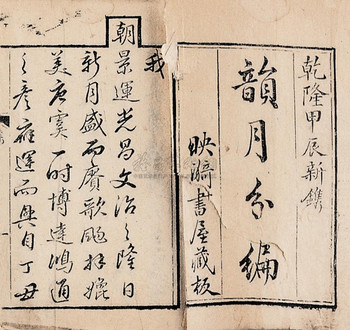 乾隆甲辰新鐫
韻月分編
映漪書屋藏板
我
朝景運光昌文治之隆日
新月盛而賡歌颺拜媲
美唐虞一時博達鴻通
之彥應運而興自丁丑